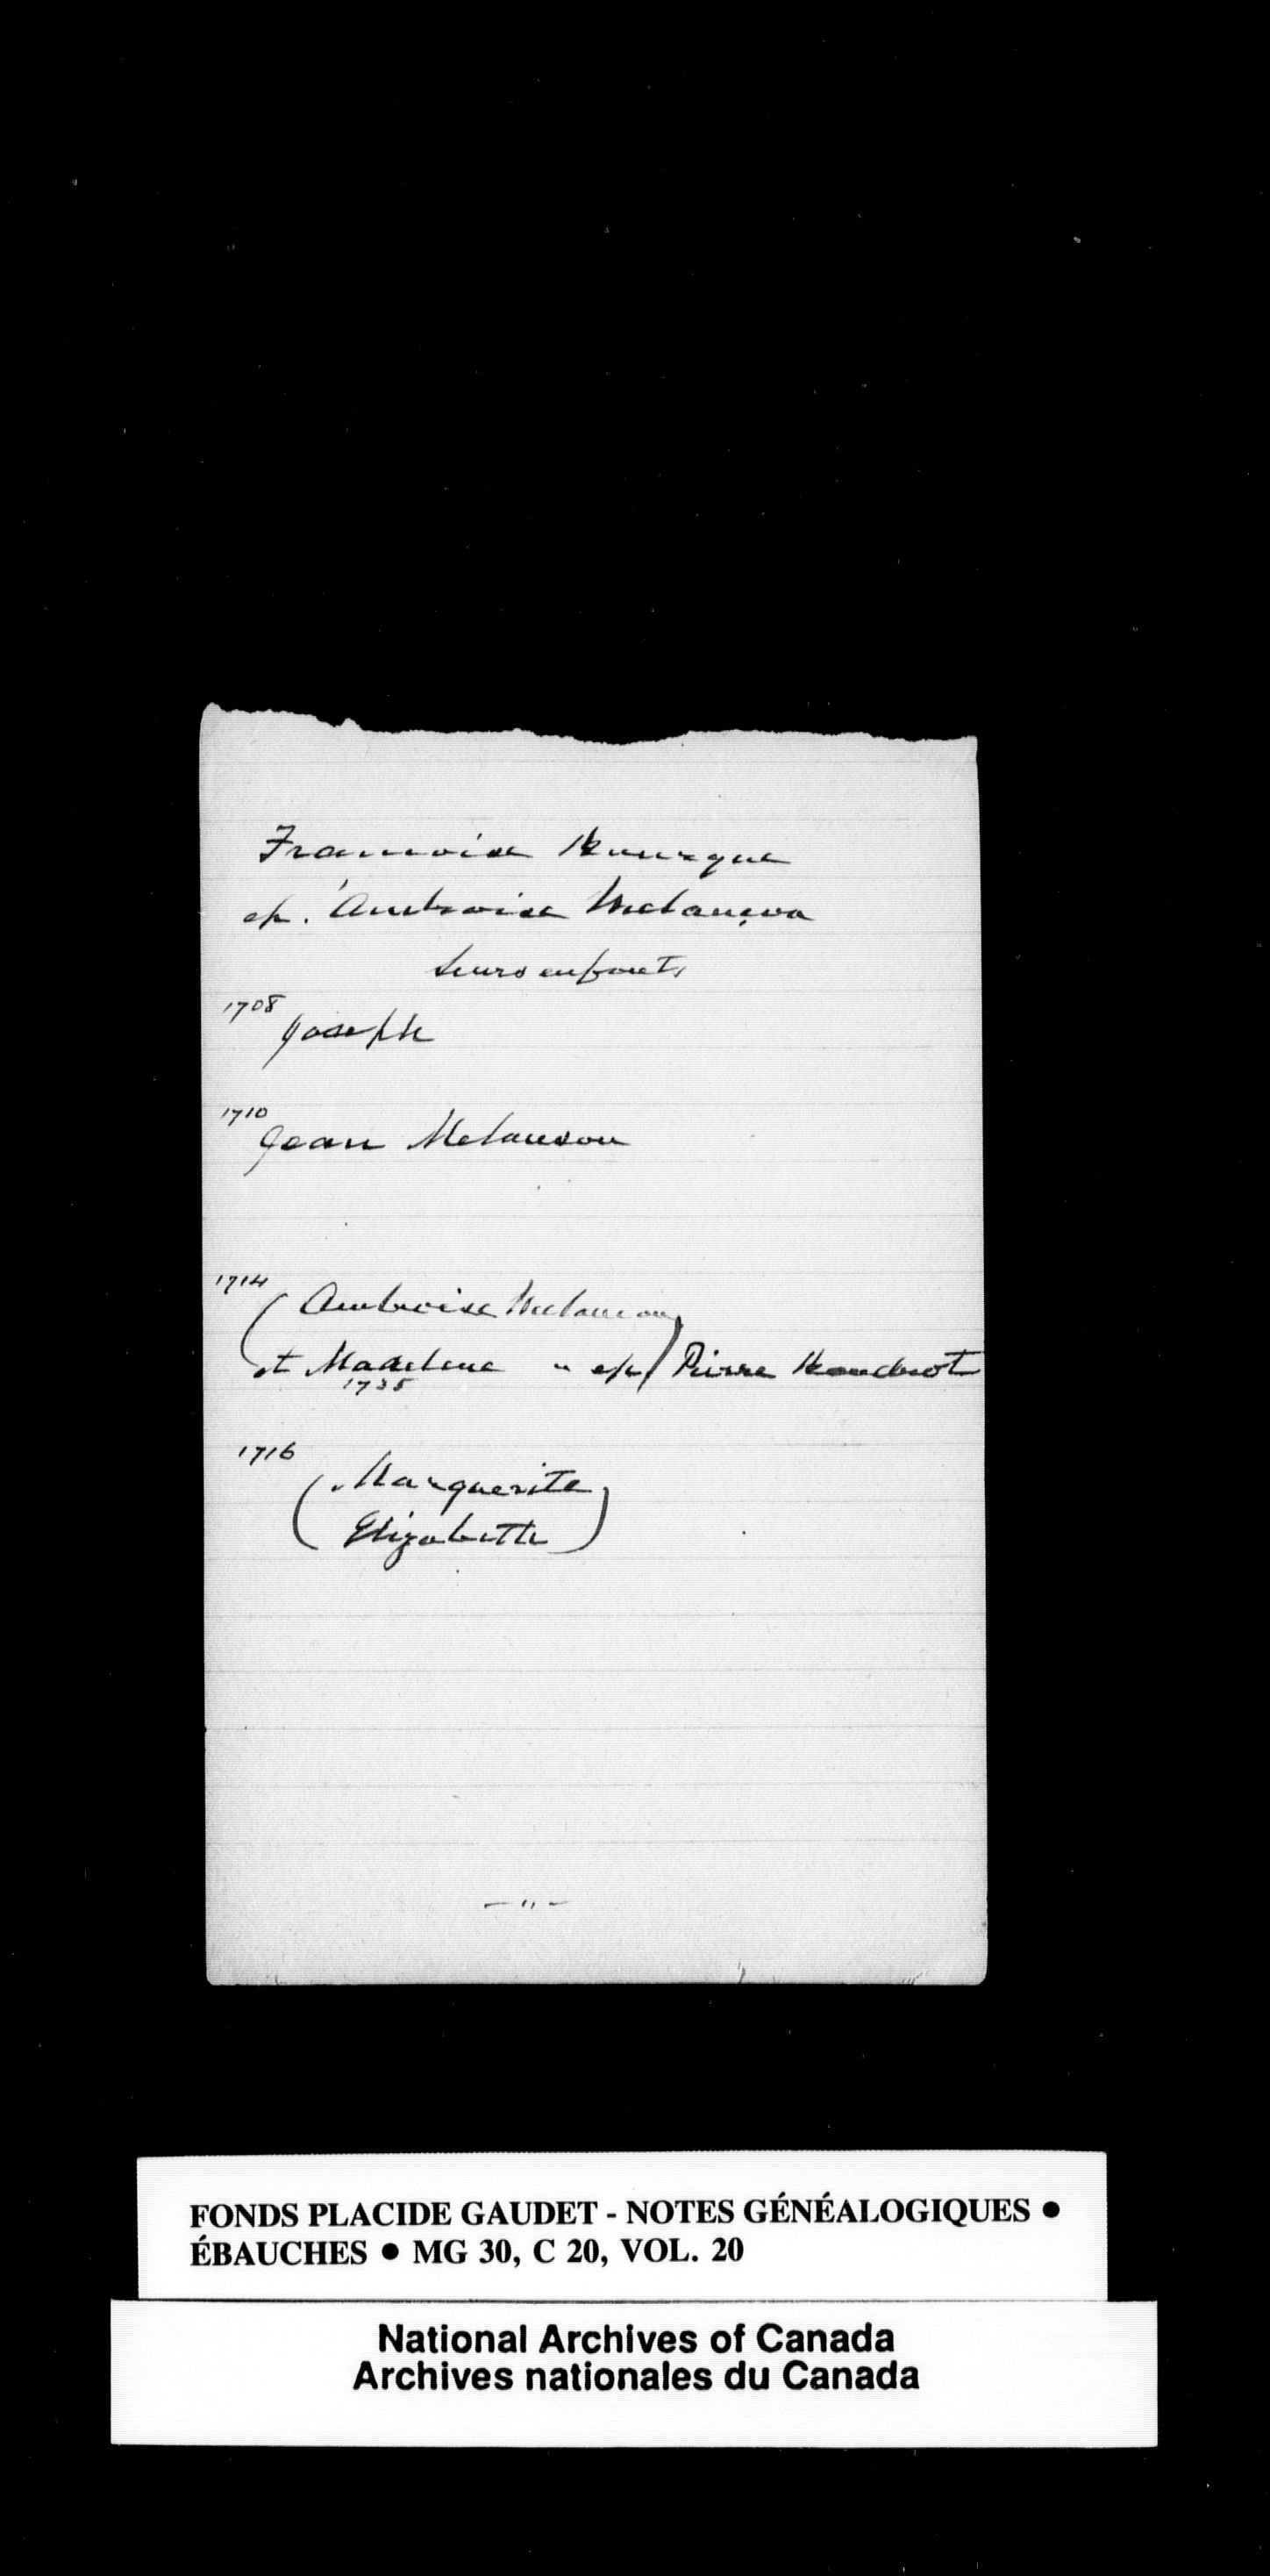 Francoise Bourgue
ép. Ambroise Melançon
Leurs enfants
1708
Joseph
1710
Jean Melanson
1714
( Ambroise Melancon )
et Madelene " ép Pierre Boudrot
1735
1716
( Marguerite )
Elizabeth
— " —
FONDS PLACIDE GAUDET - NOTES GÉNÉALOGIQUES ●
ÉBAUCHES ● MG 30, C 20, VOL. 20
National Archives of Canada
Archives nationales du Canada